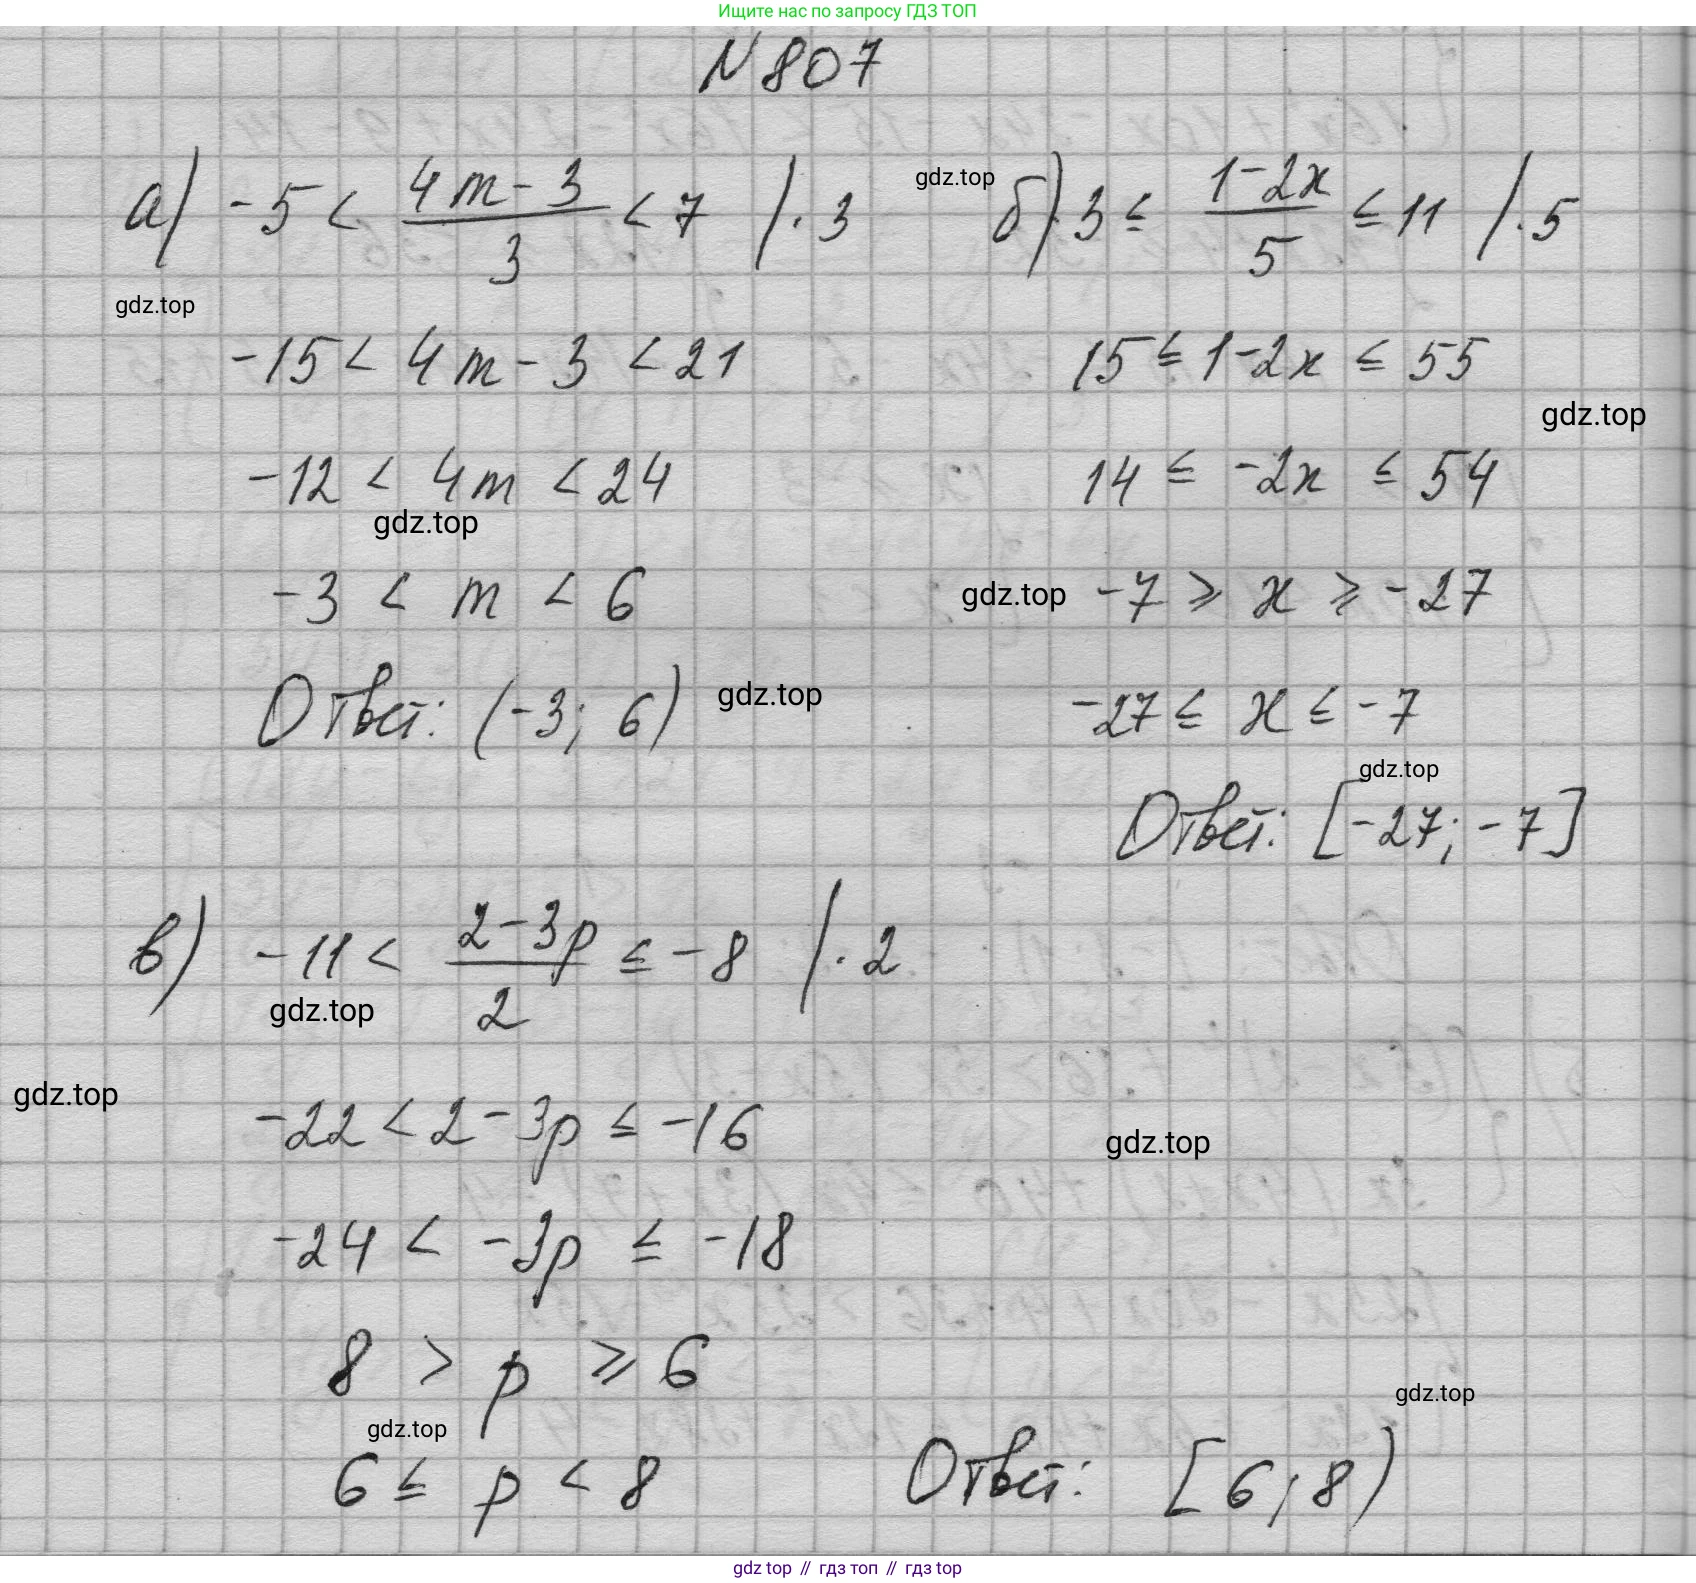 Ищите нас по запросу ГДЗ ТОП
N 807
а) -5 < (4m - 3)/3 < 7 / · 3
gdz.top
-15 < 4m - 3 < 21
-12 < 4m < 24
gdz.top
-3 < m < 6
Ответ: (-3; 6)
gdz.top
gdz.top
б) 3 ≤ (1 - 2x)/5 ≤ 11 / · 5
15 ≤ 1 - 2x ≤ 55
gdz.top
14 ≤ -2x ≤ 54
gdz.top
-7 ⩾ x ⩾ -27
-27 ≤ x ≤ -7
gdz.top
Ответ: [-27; -7]
в) -11 < (2 - 3p)/2 ≤ -8 / · 2
gdz.top
gdz.top
-22 < 2 - 3p ≤ -16
gdz.top
-24 < -3p ≤ -18
8 > p ⩾ 6
gdz.top
gdz.top
6 ≤ p < 8
Ответ: [6; 8)
gdz top // гдз топ // gdz top